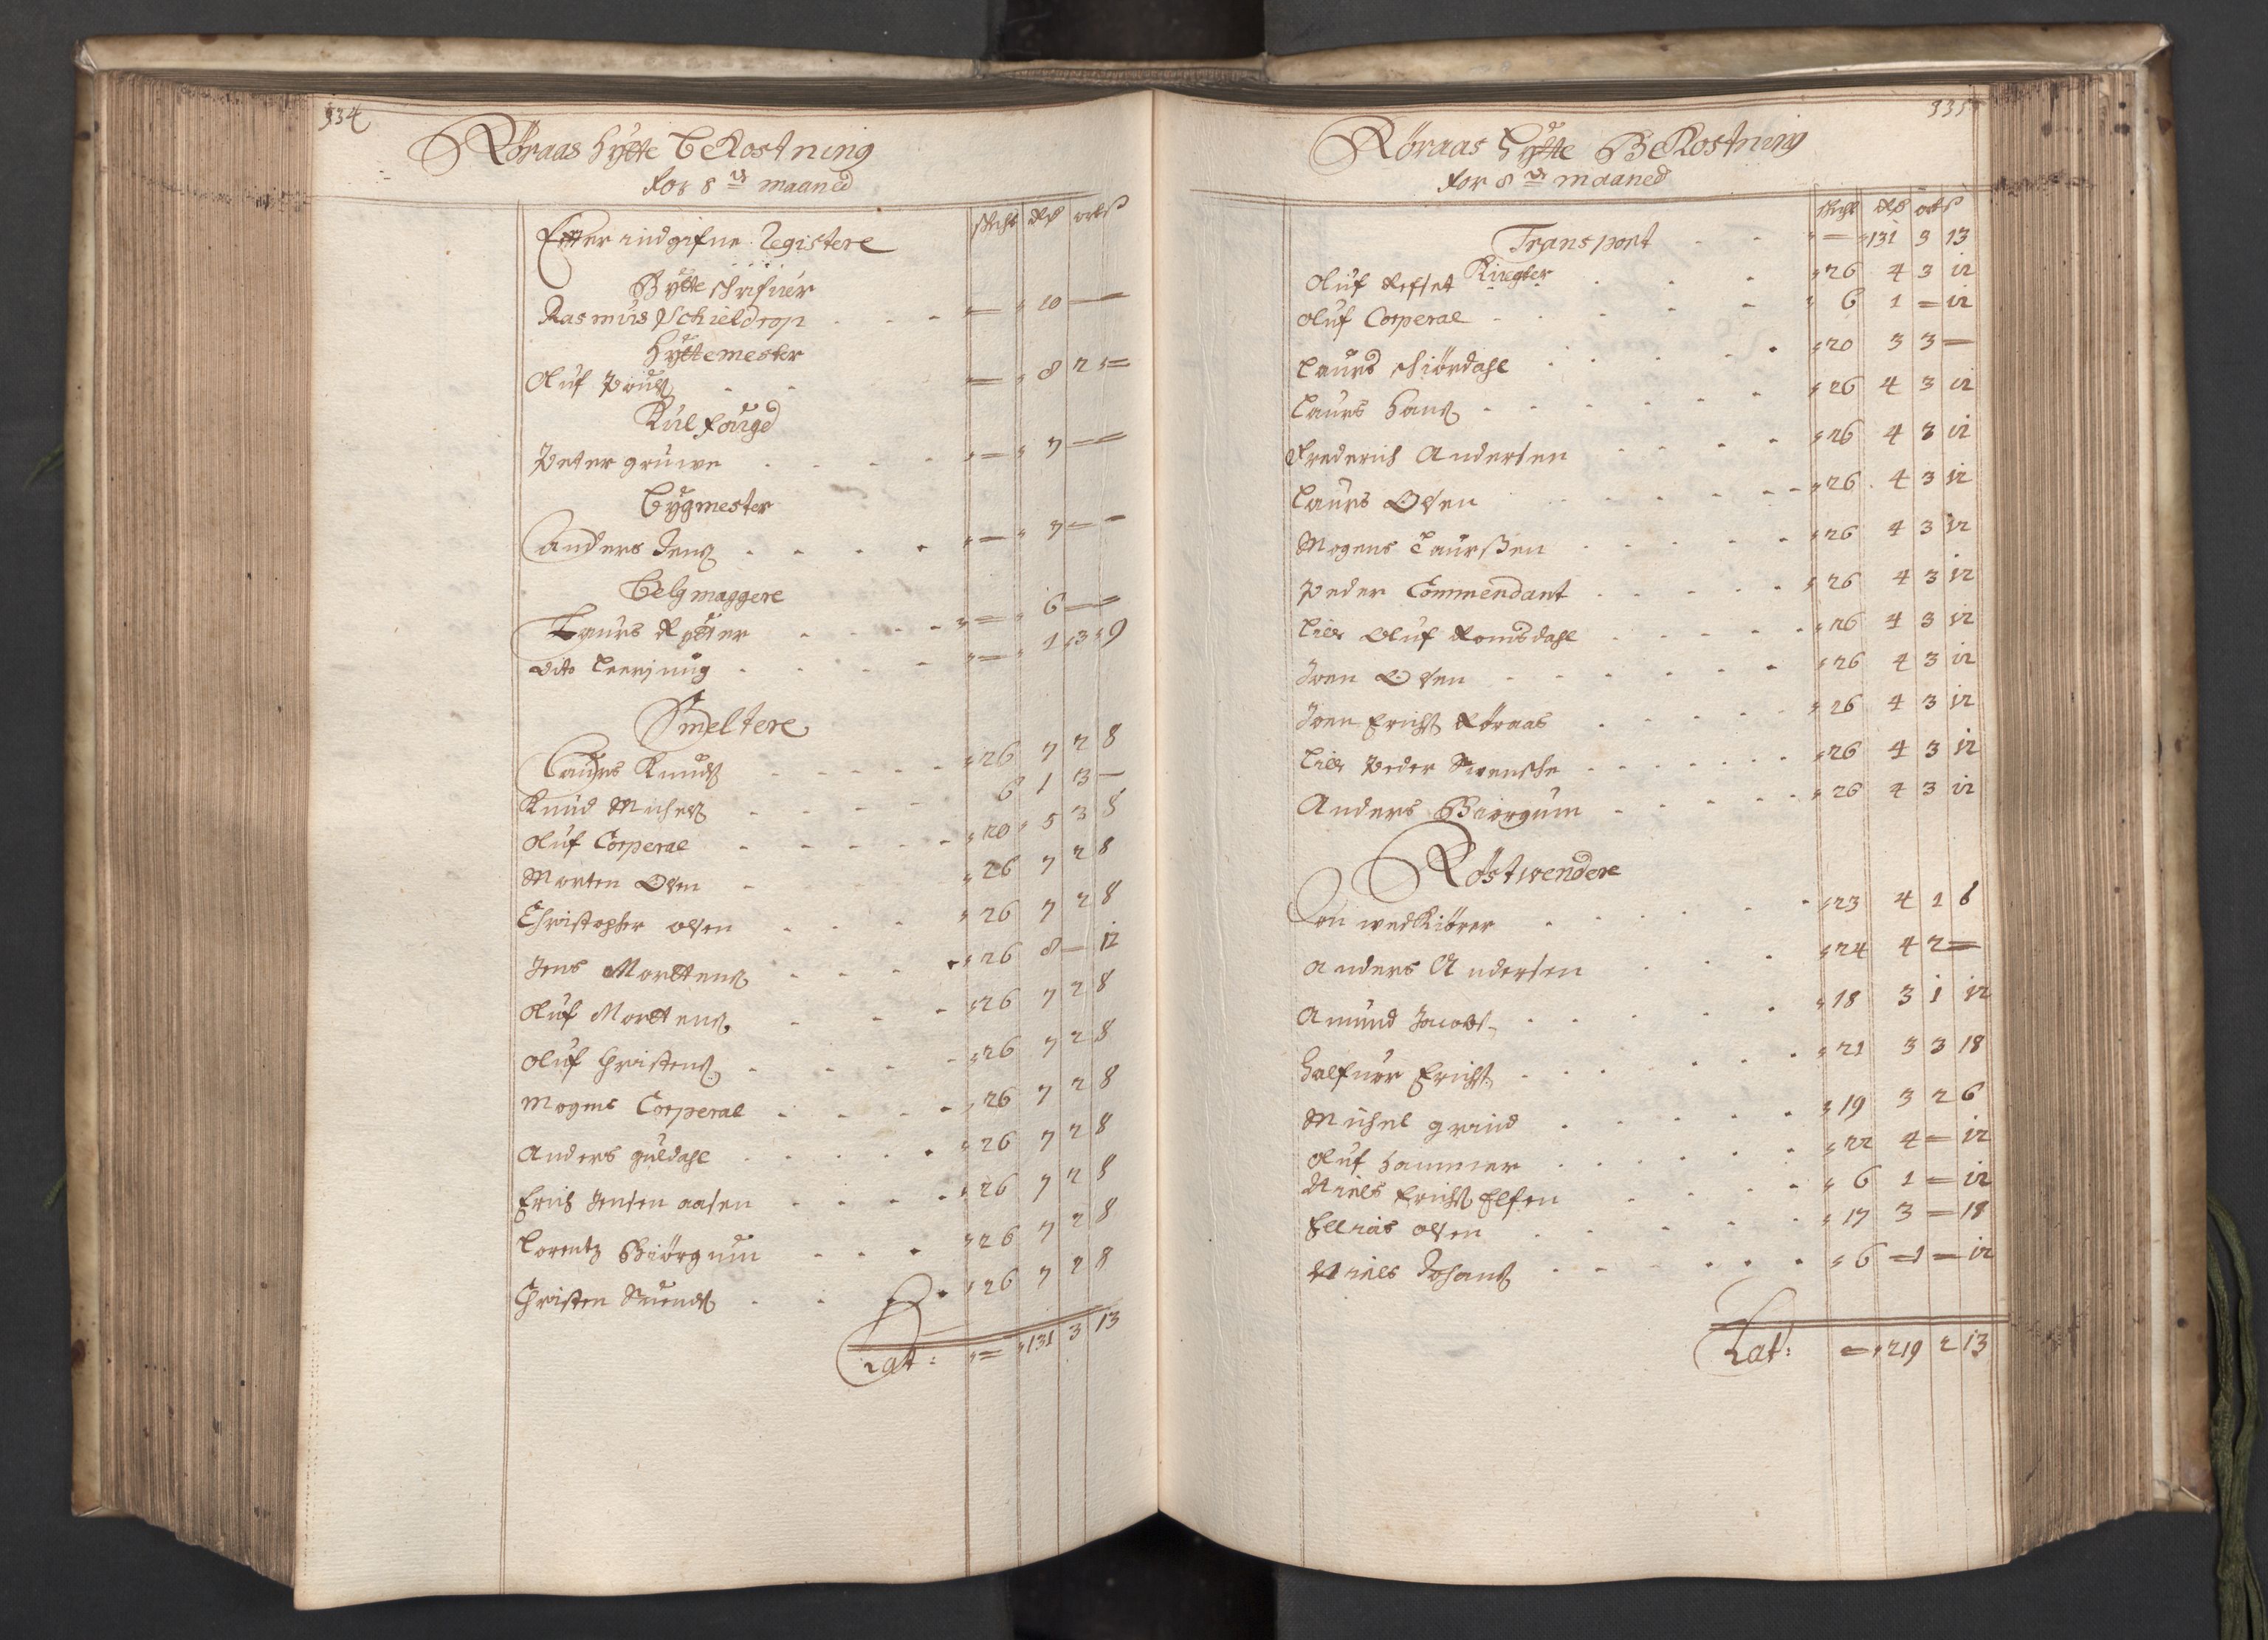 334
Röraas Hytte Bekostning
for 8de maaned
Efter indgifne Registere
schcht rdr ort ß
Hytte schrifuer
Rasmus Schieldrop - - - = 10 —
Hyttemester
Oluf Pouels - - = 8 2 =
Kulfougd
Peter gruwe - - - = 7 — —
Bygmester
Anders Jens - - - = 7 — —
Belgmaggere
Laurs Rytter - - - = 6 — —
dito leerjung - - - = 1 3 9
Smeltere
Laurs Knuds - - - 26 7 2 8
Knud Michels - - - 6 1 3 —
Oluf Corperal - - - 20 5 3 8
Morten Olsen - 26 7 2 8
Christopher olsen - - - 26 7 2 8
Jens Morttens - - - 26 8 — 12
Oluf Morttens - - - 26 7 2 8
Oluf Christens - - - 26 7 2 8
Mogens Corperal - - - 26 7 2 8
Anders guldahl - - - 26 7 2 8
Erich Jensen aasen - - - 26 7 2 8
Lorentz Biörgum - - - 26 7 2 8
Christen Suends - - - 26 7 2 8
Lat: = 131 3 13
335
Röraas Hytte Bekostning
for 8de maaned
schcht rdr ort ß
Transport - - = 131 3 13
Kuegter
Oluf Refset - - - 26 4 3 12
Oluf Corperal - - - 6 1 = 12
Laurs schiördahl - - - 20 3 3 —
Laurs Hans - - - 26 4 3 12
Frederich Andersen - - - 26 4 3 12
Laurs Olsen - - - 26 4 3 12
Mogens Laurßen - - - 26 4 3 12
Peder Commendant - - - 26 4 3 12
Lille Oluf Romsdahl - - - 26 4 3 12
Joen Olsen - - - 26 4 3 12
Joen Erichs Röraas - - - 26 4 3 12
Lille Peder Swensche - - - 26 4 3 12
Anders Biörgum - - - 26 4 3 12
Röstwendere
Jon wedkiörer - - - 23 4 1 6
Anders Andersen - - - 24 4 2 =
Amund Jacobs - - - 18 3 1 12
Halfuor Erichs - - - 21 3 3 18
Michel grind - - - 19 3 2 6
Oluf Hammer - - - 22 4 = 12
Niels Erichs Elfen - - - 6 1 = 12
Ellias olsen - - - 17 3 = 18
Niels Johans - - - 6 1 = 12
Lat: = 219 2 13